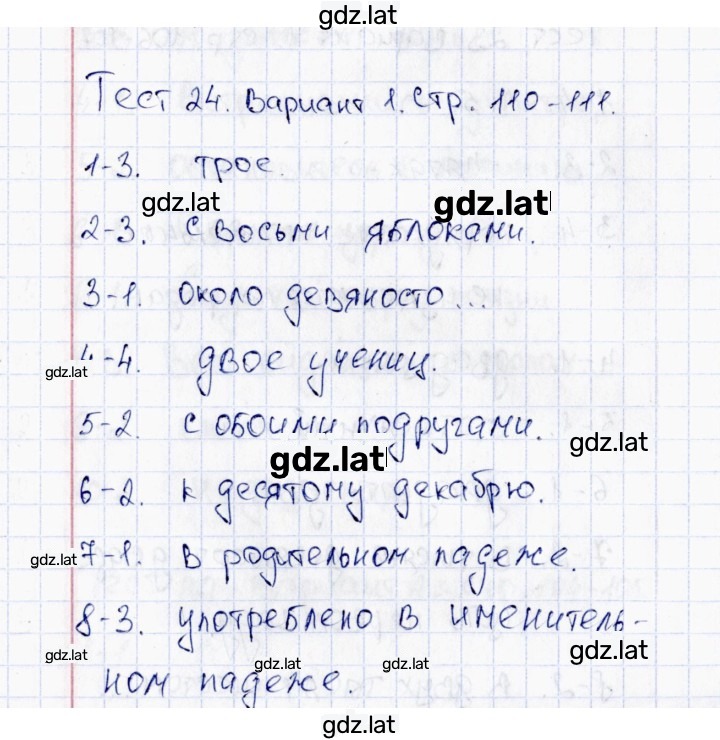 gdz.lat
Тест 24. Вариант 1. Стр. 110-111.
1-3. трое.
gdz.lat
gdz.lat
2-3. с восьми яблоками.
3-1. около девяносто...
4-4. двое учениц.
gdz.lat
5-2. с обоими подругами.
gdz.lat
gdz.lat
6-2. к десятому декабрю.
7-1. в родительном падеже.
gdz.lat
8-3. употреблено в именитель-
gdz.lat
gdz.lat
gdz.lat
gdz.lat
ном падеже.
gdz.lat